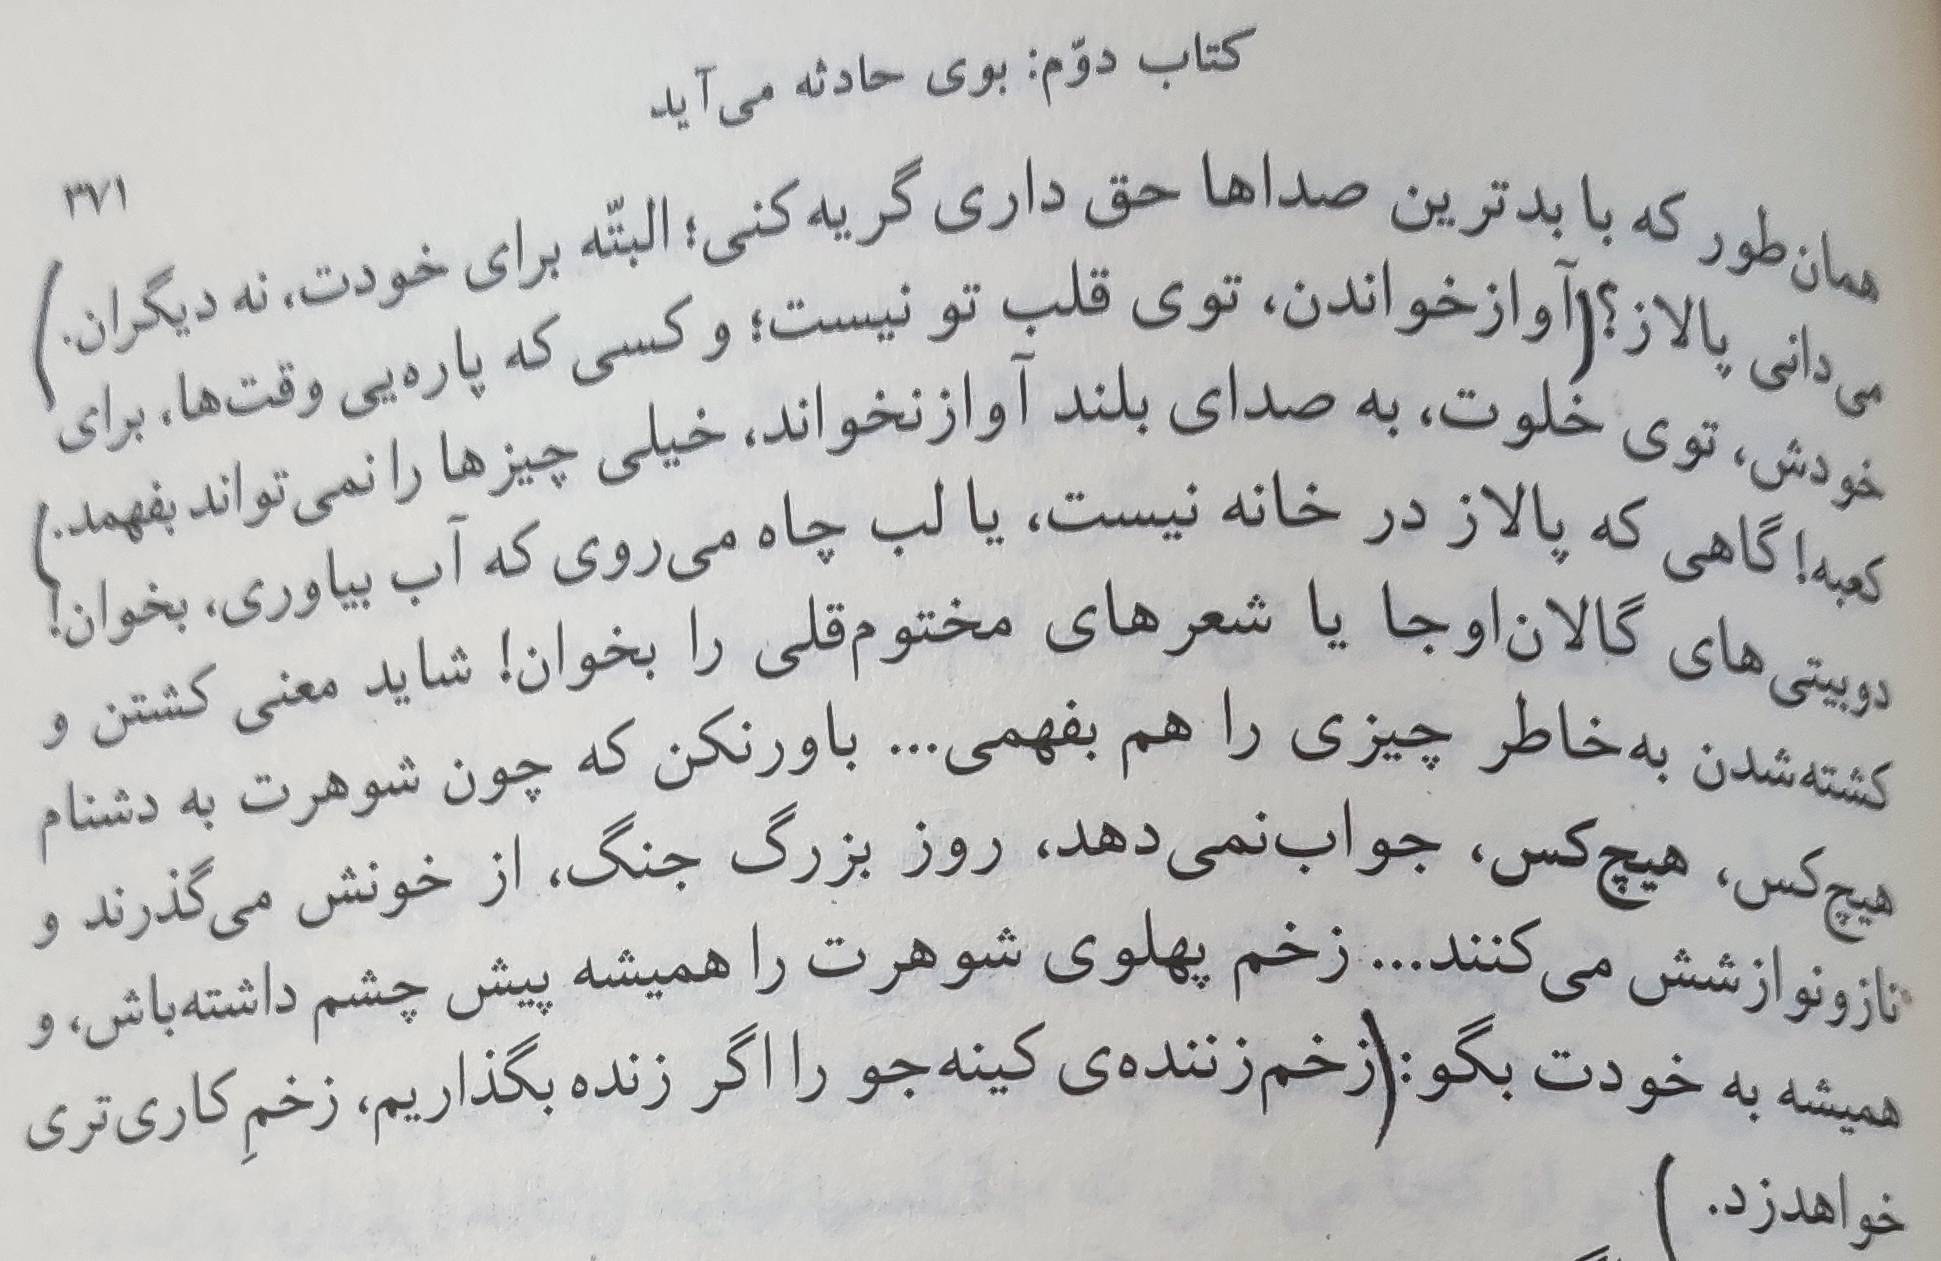 کتاب دوّم: بوی حادثه می‌آید
۳۷۱
همان‌طور که با بدترین صداها حق داری گریه کنی؛ البتّه برای خودت، نه دیگران.)
می‌دانی پالاز؟(آوازخواندن، توی قلب تو نیست؛ و کسی که پاره‌یی وقت‌ها، برای
خودش، توی خلوت، به صدای بلند آوازنخواند، خیلی چیزها را نمی‌تواند بفهمد.)
کعبه! گاهی که پالاز در خانه نیست، یا لب چاه می‌روی که آب بیاوری، بخوان!
دوبیتی‌های گالان‌اوجا یا شعرهای مختوم‌قلی را بخوان! شاید معنی کشتن و
کشته‌شدن به‌خاطر چیزی را هم بفهمی... باورنکن که چون شوهرت به دشنام
هیچ‌کس، هیچ‌کس، جواب‌نمی‌دهد، روز بزرگ جنگ، از خونش می‌گذرند و
نازونوازشش می‌کنند... زخم پهلوی شوهرت را همیشه پیش چشم داشته‌باش، و
همیشه به خودت بگو:(زخم‌زننده‌ی کینه‌جو را اگر زنده بگذاریم، زخمِ کاری‌تری
خواهدزد.)